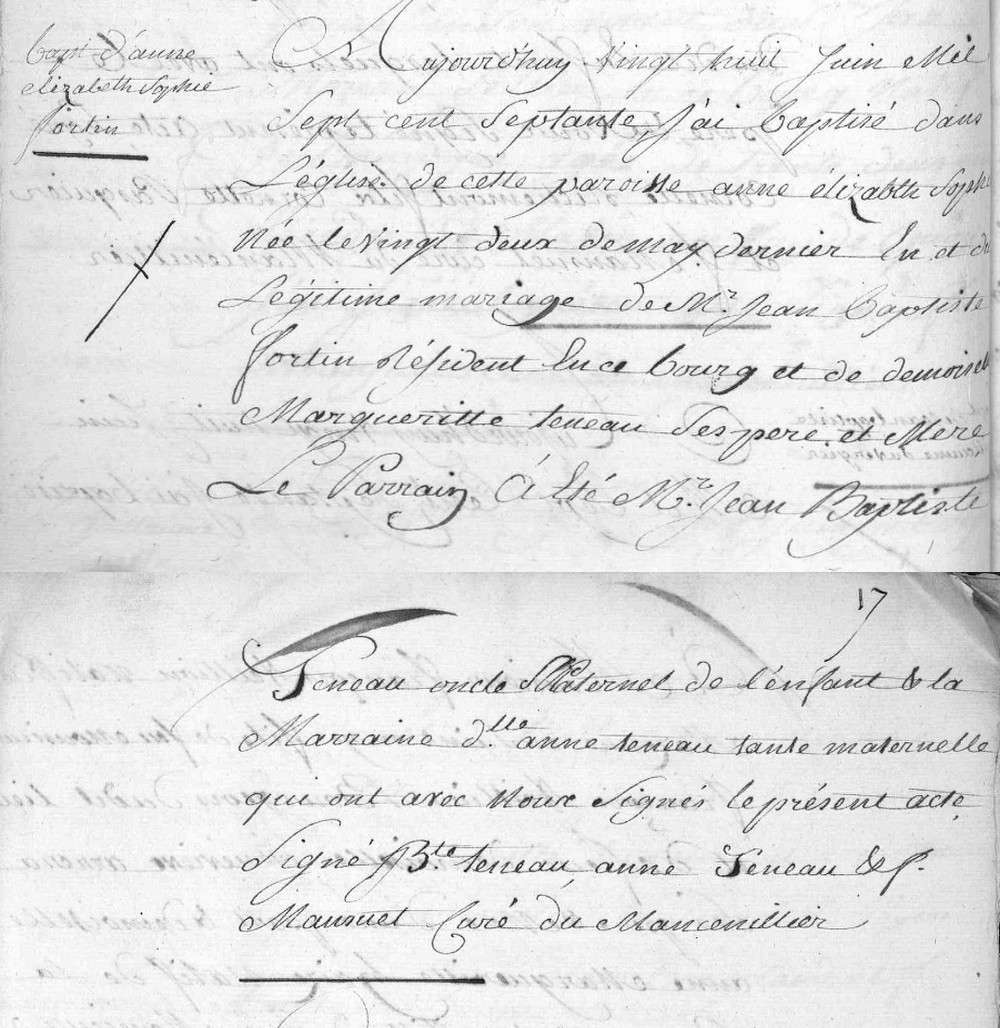 bapt d'anne
elizabeth Sophie
fortin
Aujourdhuy Vingt huit Juin Mil
Sept cent Septante, J'ai baptisé dans
L'église de cette paroisse anne élizabth Soph
Née le Vingt deux de may dernier En et de
Légitime mariage de Mr. Jean baptiste
fortin Résident En ce bourg et de demoisel
Margueritte teneau Ses pere et Mere
Le Parrain À Eté Mr. Jean Baptiste
17
Teneau oncle Paternel de l'enfant & la
Marraine dlle. anne teneau tante maternelle
qui ont avec Nous Signés le présent acte,
Signé Bte teneau, anne Teneau & f.
Mansuet Curé du Mancenillier